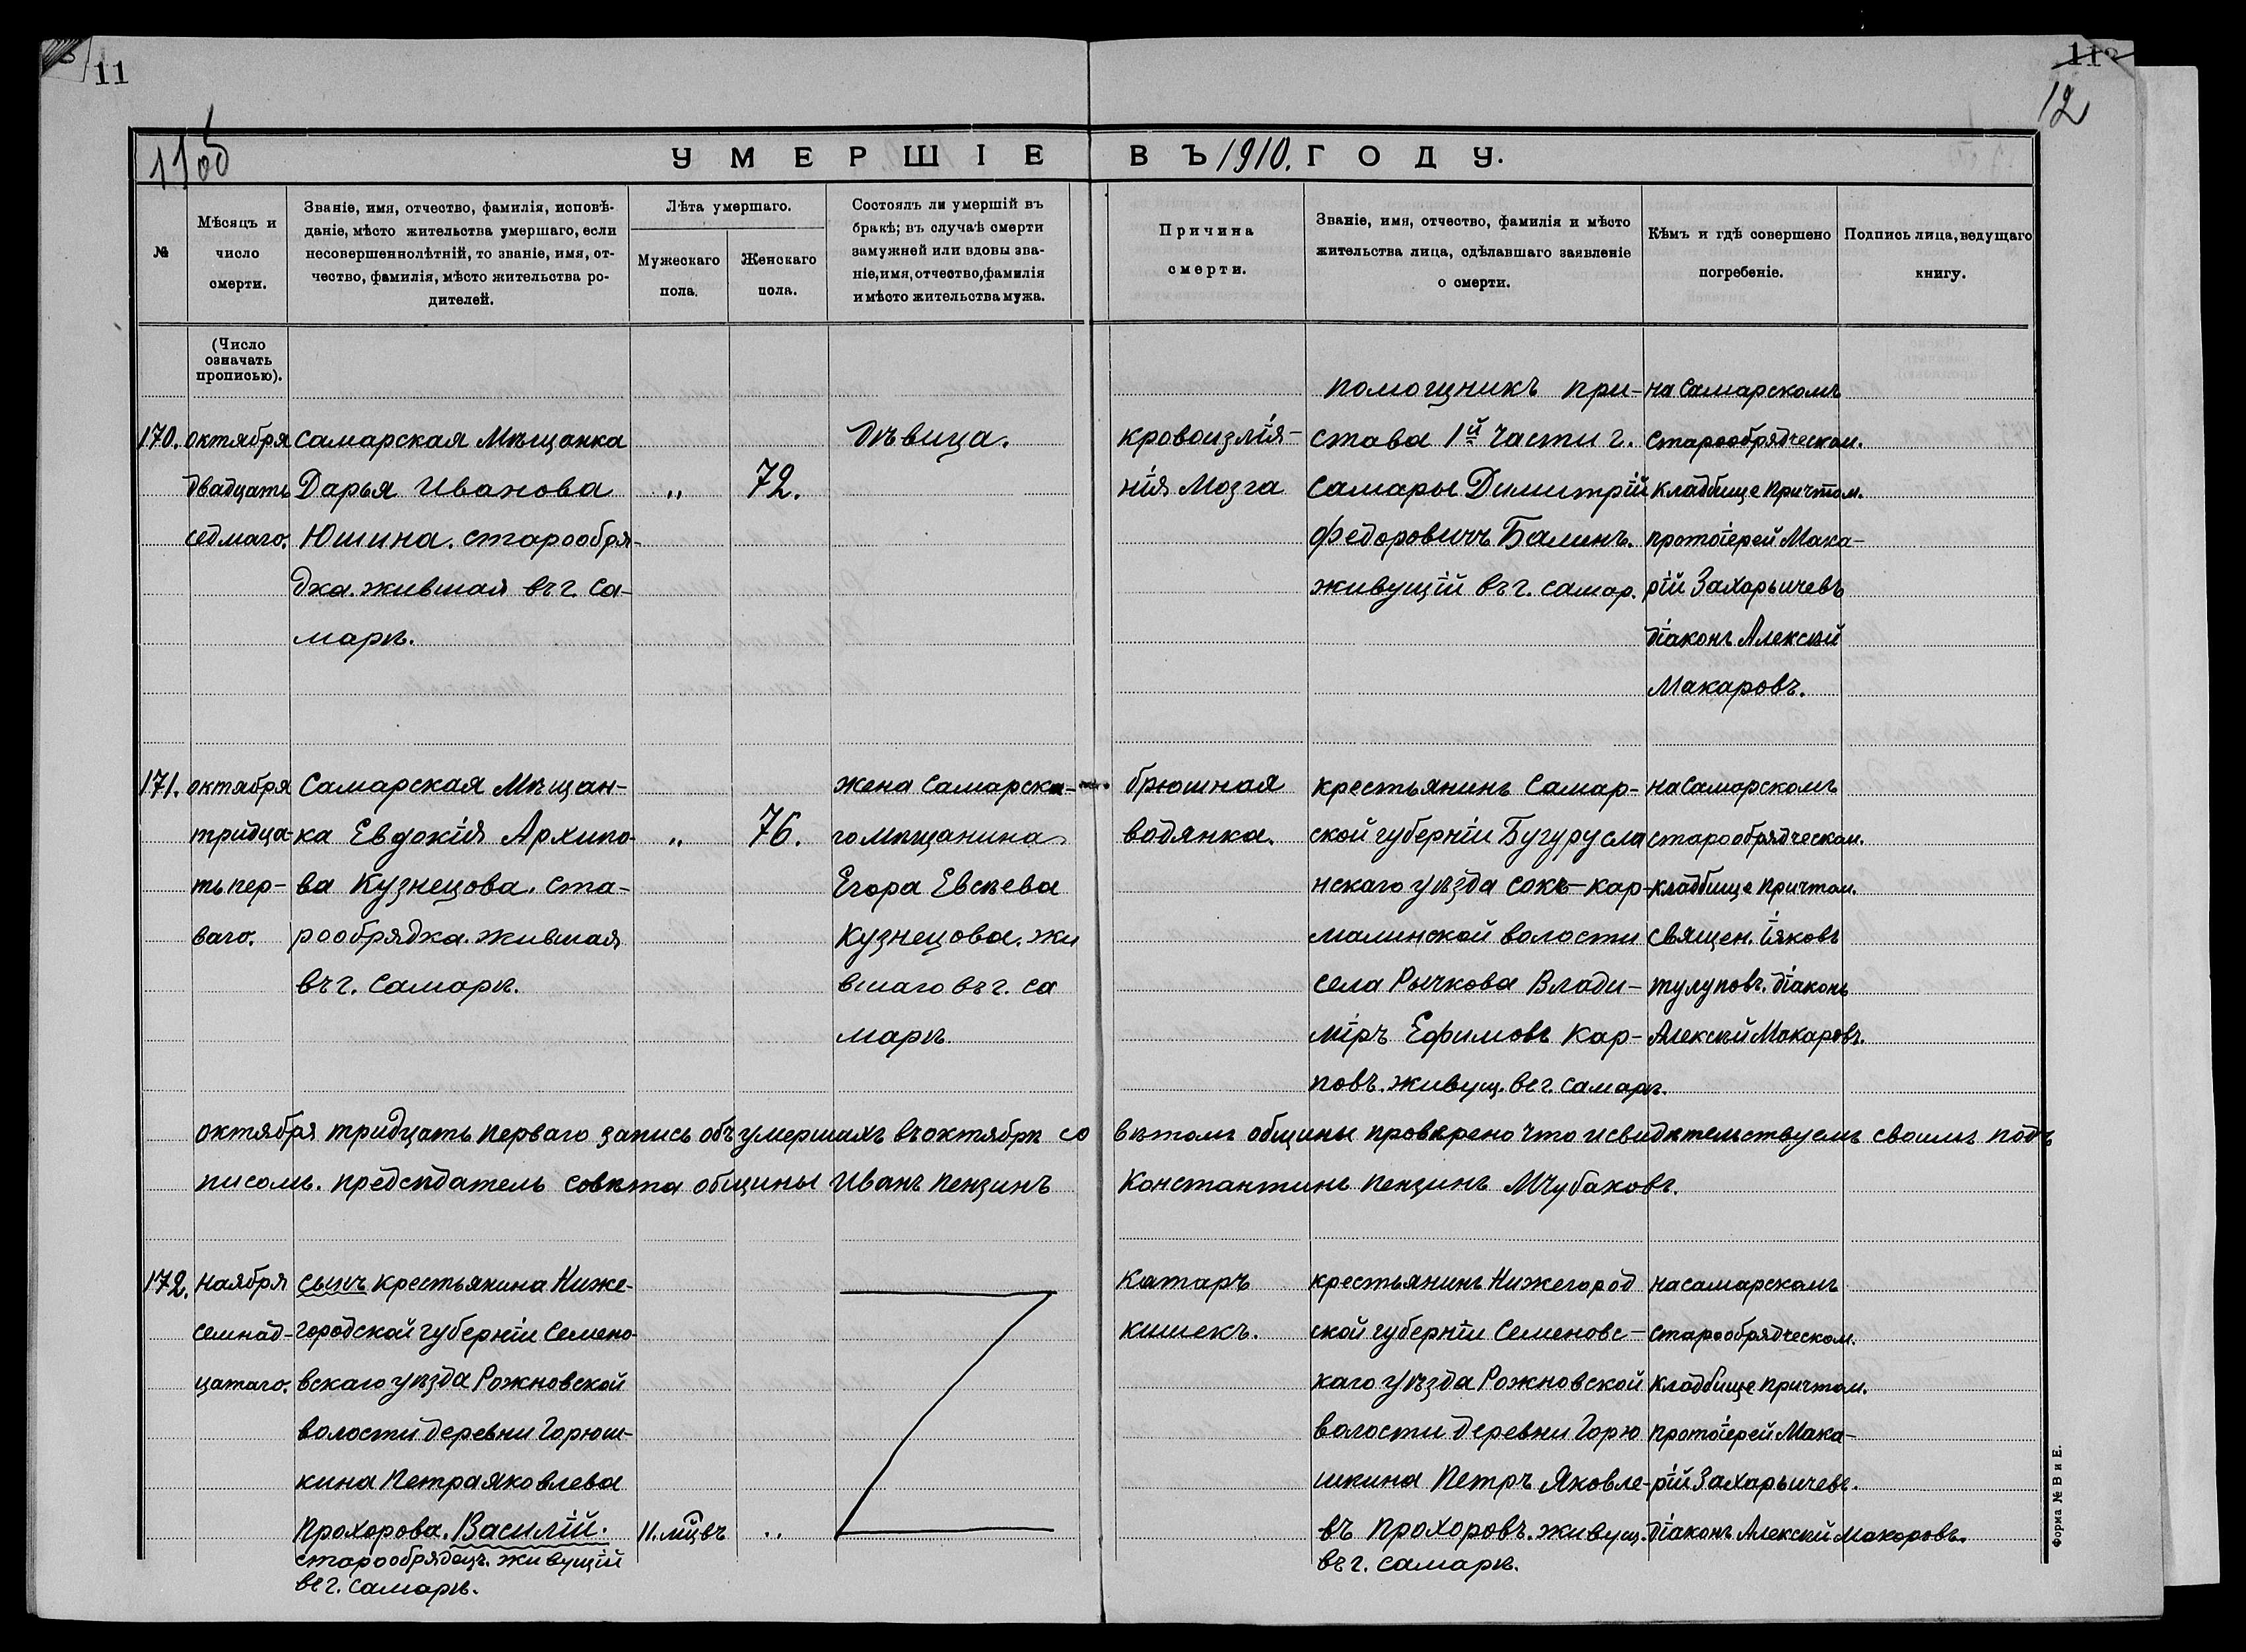 11
113
12
1100
УМЕРШІЕ ВЪ 1910. ГОДУ.
№
Мѣсяцъ и
число
смерти.
Званіе, имя, отчество, фамилія, исповѣ-
даніе, мѣсто жительства умершаго, если
несовершеннолѣтній, то званіе, имя, от-
чество, фамилія, мѣсто жительства ро-
дителей.
Лѣта умершаго.
Мужескаго
пола.
Женскаго
пола.
Состоялъ ли умершій въ
бракѣ; въ случаѣ смерти
замужней или вдовы зва-
ніе, имя, отчество, фамилія
и мѣсто жительства мужа.
Причина
смерти.
Званіе, имя, отчество, фамилія и мѣсто
жительства лица, сдѣлавшаго заявленіе
о смерти.
Кѣмъ и гдѣ совершено
погребеніе.
Подпись лица, ведущаго
книгу.
(Число
означать
прописью).
170.
октября
двадцать
седмаго.
самарская Мѣщанка
Дарья Иванова
Юшина. старообря-
дка. жившая въ г. Са-
марѣ.
„
72.
дѣвица.
кровоизлія-
нія Мозга
помощникъ при-
става 1й части г.
Самары Димитрій
Федоровичъ Балинъ.
живущій въ г. самар.
на Самарскомъ
старообрядческом.
кладбище Причтом.
протоіерей Мака-
рій Захарычевъ
діаконъ Алексѣй
Макаровъ.
171.
октября
тридца-
ть пер-
ваго.
Самарская Мѣщан-
ка Евдокія Архипо-
ва Кузнецова. ста-
рообрядка. жившая
въ г. Самарѣ.
„
76.
жена Самарска-
го мѣщанина
Егора Евсѣева
Кузнецова. жи
вшаго въ г. са
марѣ
брюшная
водянка.
крестьянинъ Самар-
ской губерніи Бугурусла
нскаго уѣзда сокъ-кар-
малинской волости
села Рычкова Влади-
міръ Ефимовъ Кар-
повъ. живущ. въ г. самарѣ.
на Самарскомъ
старообрядческом.
кладбище причтом.
священ. Іяковъ
тулуповъ. діаконъ
Алексѣй Макаровъ.
октября тридцать перваго запись объ умершихъ въ октябрѣ со вѣтомъ общины провѣрено что и свидѣтельствуемъ своимъ подъ
писомъ. предсѣдатель совѣта общины Иванъ Пензинъ Константинъ Пензинъ М Чубаковъ.
172.
ноября
семнад-
цатаго.
сынъ крестьянина Ниже-
городской губерніи Семено-
вскаго уѣзда Рожновской
волости деревни Горюш-
кина Петра Яковлева
Прохорова. Василій.
старообрядецъ. живущій
въ г. самарѣ.
11. мцвъ
„
Катаръ
кишекъ.
крестьянинъ Нижегород
ской губерніи Семеновс-
каго уѣзда Рожновской
волости деревни Горю
шкина Петръ Яковле-
въ Прохоровъ. живущ.
въ г. самарѣ.
на самарскомъ
старообрядческом.
кладбище причтом.
протоіерей Мака-
рій Захарычевъ.
діаконъ Алексѣй Макаровъ.
Форма № В и Е.